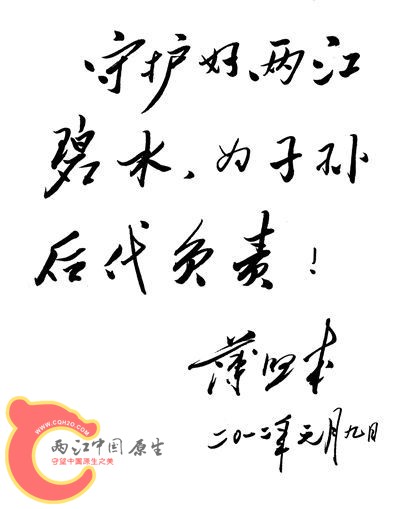 守护好两江
碧水、为子孙
后代负责！
二〇一二年元月九日
WWW.CQH2O.COM
两江中国 原生
守望中国原生之美